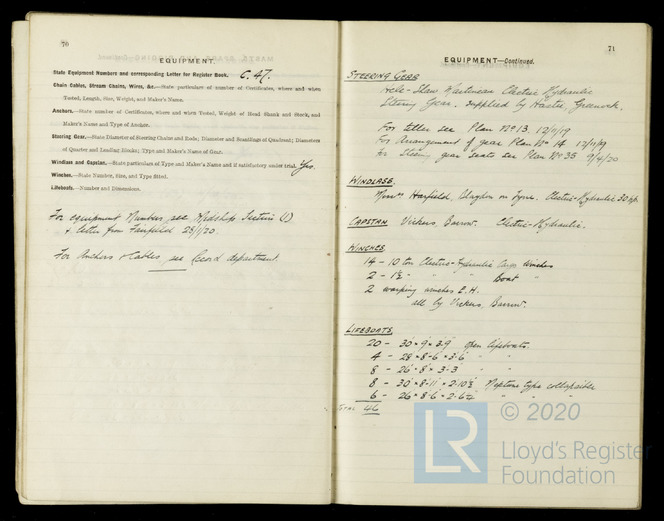 70
EQUIPMENT.
State Equipment Numbers and corresponding Letter for Register Book. C.47.
Chain Cables, Stream Chains, Wires, &c.—State particulars of number of Certificates, where and when
Tested, Length, Size, Weight, and Maker's Name.
Anchors.—State number of Certificates, where and when Tested, Weight of Head Shank and Stock, and
Maker's Name and Type of Anchor.
Steering Gear.—State Diameter of Steering Chains and Rods; Diameter and Scantlings of Quadrant; Diameters
of Quarter and Leading Blocks; Type and Maker's Name of Gear.
Windlass and Capstan.—State particulars of Type and Maker's Name and if satisfactory under trial. Yes.
Winches.—State Number, Size, and Type fitted.
Lifeboats.—Number and Dimensions.
For equipment Number, see Midship Section (1)
& letter from Fairfield 28/1/20.
For Anchors & Cables, see Record department.
71
EQUIPMENT—Continued.
STEERING GEAR
Hele-Shaw Martineau Electric Hydraulic
Steering Gear. Supplied by Hastie, Greenock.
For tiller see Plan No 13. 12/11/19
For Arrangement of gear Plan No 14 12/11/19
For Steering gear seats see Plan No 35 9/4/20
WINDLASS.
Messrs Harfield, Blaydon on Tyne. Electric-Hydraulic
CAPSTAN Vickers, Barrow. Electric-Hydraulic.
WINCHES
14 - 10 ton Electric-Hydraulic Cargo winches
2 - 1½ " " " Boat "
2 warping winches E.H.
all by Vickers, Barrow.
LIFEBOATS
20 - 30 × 9 × 3.9 open lifeboats.
4 - 28 × 8.6 × 3.6 " "
8 - 26 × 8 × 3.3 " "
8 - 30 × 8.11 × 2.10½ Neptune type collapsible
6 - 26 × 8.6 × 2.6¼ " " "
Total 46
LR
© 2020
Lloyd's Register
Foundation